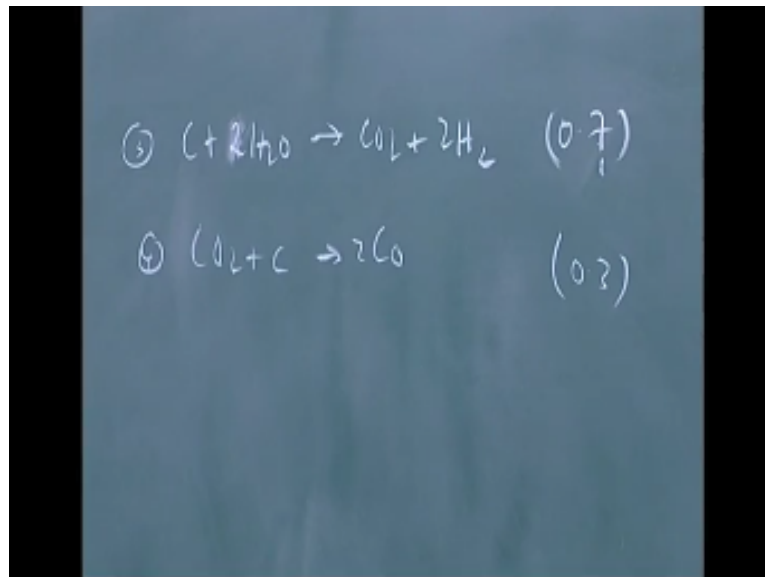 ③ C + 2H₂O → CO₂ + 2H₂ (0.7)
④ CO₂ + C → 2CO (0.3)